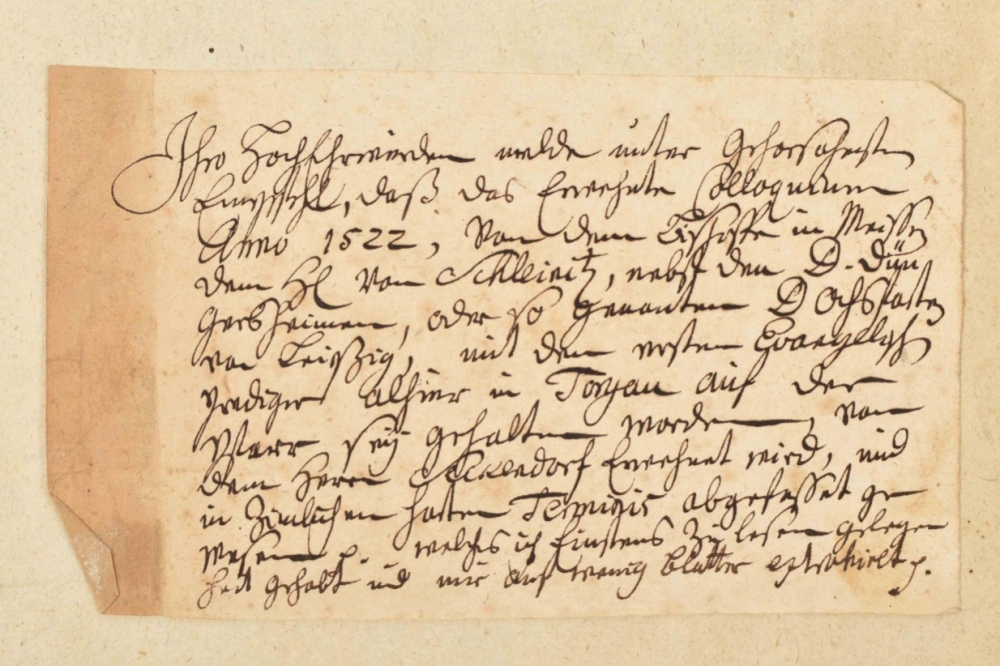 Ihro HochEhrwürden melde unter gehorsahmsten
Empfehl, daß das Erwehnte Colloquium
Anno 1522, Von dem Bischoffe in Meissen
dem H. Von Schleinitz, nebst den D. Dün
gersheimen, oder so genanten D Ochsfarten
von Leipzig, mit dem ersten Evangelisch
prediger alhier in Torgau auf der
Pfarr seÿ gehalten worden, von
dem Herrn Seckendorf Erwehnet wird, und
in Zimlichen harten Terminis abgefasset ge
wesen p. welches ich Einstens Zu lesen gelegen
heit gehabt und mir auf wenig blätter extrahiert p.